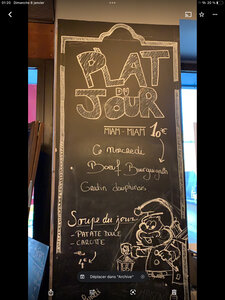 01:20 Dimanche 8 janvier
20 %
PLAT
DU
JOUR
MIAM - MIAM 10€
Ce mercredi
Bœuf Bourguignon
Gratin dauphinois
Soupe du jour
- PATATE DOUCE
- CAROTTE
Déplacer dans "Archive"